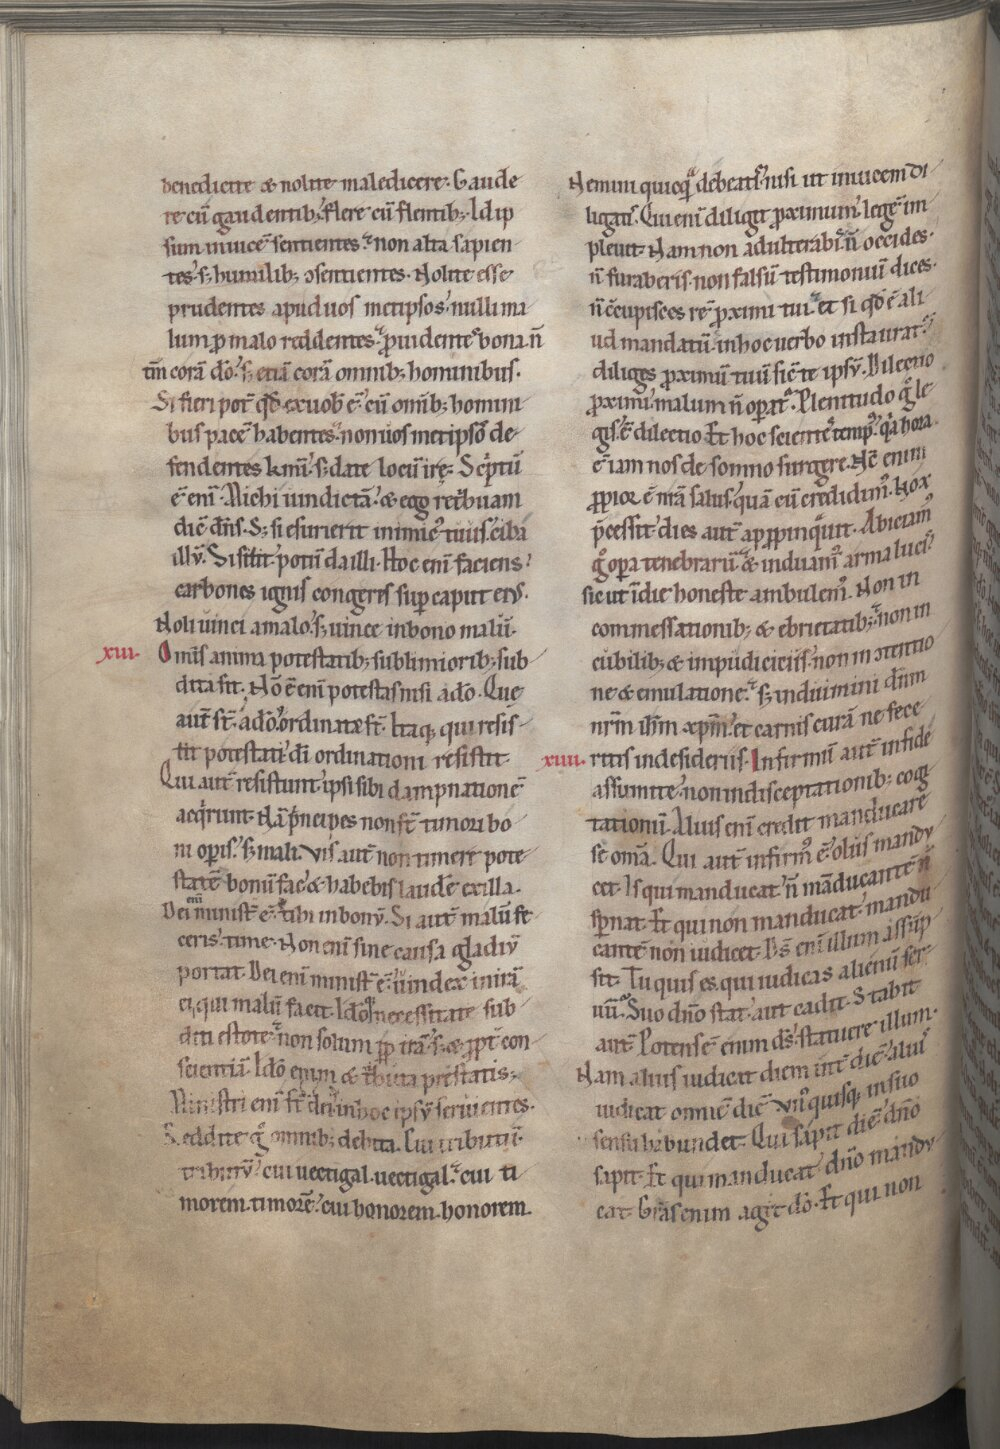 benedicite & nolite maledicere. Gaude
re cū gaudentib; flere cū flentib; Idip
sum inuicē sentientes. non alta sapien
tes. s; humilib; ↄsentientes. Nolite esse
prudentes apud uos metipsos. nulli ma
lum p malo reddentes. puidentes bona. ñ
tm̄ corā dō. s; etiā corā omnib; hominibus.
Si fieri pot̄ qd̄ ex uob̄ ē. cū om̄ib; homini
bus pacē habentes. non uos metipsos de
fendentes km̄i. s; date locū irę. Scptū
ē eni. Michi uindictā. & ego retbuam
dic̄ dn̄s. S; si esurierit inimic̄ tuus. ciba
illū. Si sitit. potū da illi. Hoc eni faciens.
carbones ignis congeres sup caput eius.
Noli uinci a malo. s; uince in bono malū.
xiii. Omīs anima potestatib; sublimiorib; sub
dita sit. Nō ē eni potestas nisi a dō. Que
aut̄ st̄. a dō ordinatæ st̄. Itaq; qui resis
tit potestati. di ordinationi resistit.
Qui aut̄ resistunt. ipsi sibi dampnationē
acqrunt. Nā pncipes non st̄ timori bo
ni opis. s; mali. Vis aut̄ non timere pote
statē. bonū fac & habebis laudē ex illa.
Dei eni minist̄ ē. tibi in bonū. Si aut̄ malū fe
ceris. time. Non eni sine causa gladiū
portat. Dei eni minist̄ ē. uindex in irā
ei. qui malū facit. Idō necessitate sub
diti estote. non solum pp irā. s; & ppt̄ con
scientiā. Idō enim & tbuta prestatis.
Ministri eni st̄ di. in hoc ipsū seruientes.
Reddite g omnib; debita. Cui tributū.
tributū. cui uectigal. uectigal. cui ti
morem. timorē. cui honorem. honorem.
Nemini quicq debeatis. nisi ut inuicem di
ligatis. Qui eni diligit pximum. legē im
pleuit. Nam non adulterabis. ñ occides.
ñ furaberis. non falsū testimoniū dices.
ñ ↄcupisces rē pximi tui. et si qd̄ ē ali
ud mandatū. in hoc uerbo instaurat.
diliges pximū tuū sic̄ te ipsū. Dilectio
pximi malum ñ opat. Plenitudo g le
gis ē dilectio. Et hoc scientes temp. qa hora
ē iam nos de somno surgere. Nc̄ enim
ppior ē nr̄a salus. quā cū credidim. Nox
pcessit. dies aut̄ appinquit. Abiciam
g opa tenebrarū. & induam arma lucis.
sicut ī die honeste ambulem. Non in
commessationib; & ebrietatib; non in
cubilib; & impudiciciis. non in ↄtentio
ne & emulatione. s; induimini dn̄m
nr̄m ih̄m xpm̄. et carnis curā ne fece
xiiii. ritis in desideriis. Infirmū aut̄ in fide
assumite. non in disceptationib; cog
tationū. Alius eni credit manducare
se omīa. Qui aut̄ infirm ē. olus mandu
cet. Is qui manducat. ñ māducantē ñ
spnat. Et qui non manducat. mandu
cantē non iudicet. Ds̄ eni illum assūp
sit. Tu quis es. qui iudicas alienū ser
uū. Suo dn̄o stat. aut cadit. Stabit
aut̄. Potens ē enim ds̄. statuere illum.
Nam alius iudicat diem int̄ diē. alius
iudicat omnē diē. Vn quisq; in suo
sensu habundet. Qui sapit diē. dn̄o
sapit. Et qui manducat dn̄o mandu
cat. Gr̄as enim agit dō. Et qui non